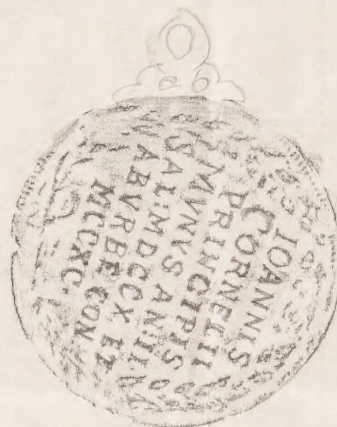 IOANNIS
CORNELII
PRINCIPIS
MVNVS AN II.
SAL: MDCCX ET
AB VRBE CON
MCCXC.